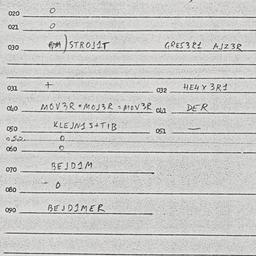 020 0
021 0
030 STROJ1T GRES3R1 AJZ3R
031 + 032 HE4Y3R1
040 MOV3R = MOJ3R = MOV3R 041 DER
050 KLEJN1S+TIB 051 —
052 0
060 0
070 BEJD1M
080 - 0
090 BEJD1MER